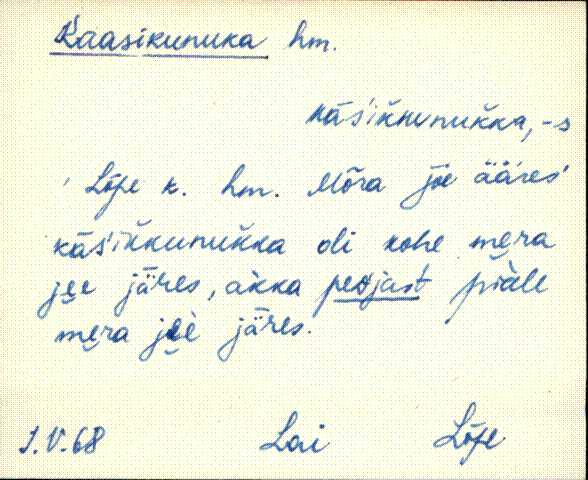 Kaasikunuka hm.
käs'ikkunukka, -s
Lõpe k. hm. Mõra jõe ääres
käs'ikkunukka oli kohe mera
jee järes, akka peojast piäle
mera jee järes.
1.V.68 Lai Lõpe